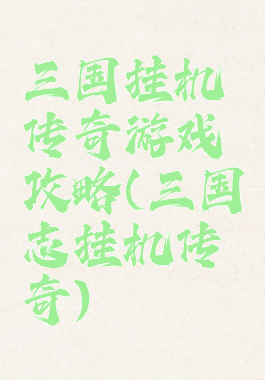 三国挂机
传奇游戏
攻略(三国
志挂机传
奇)